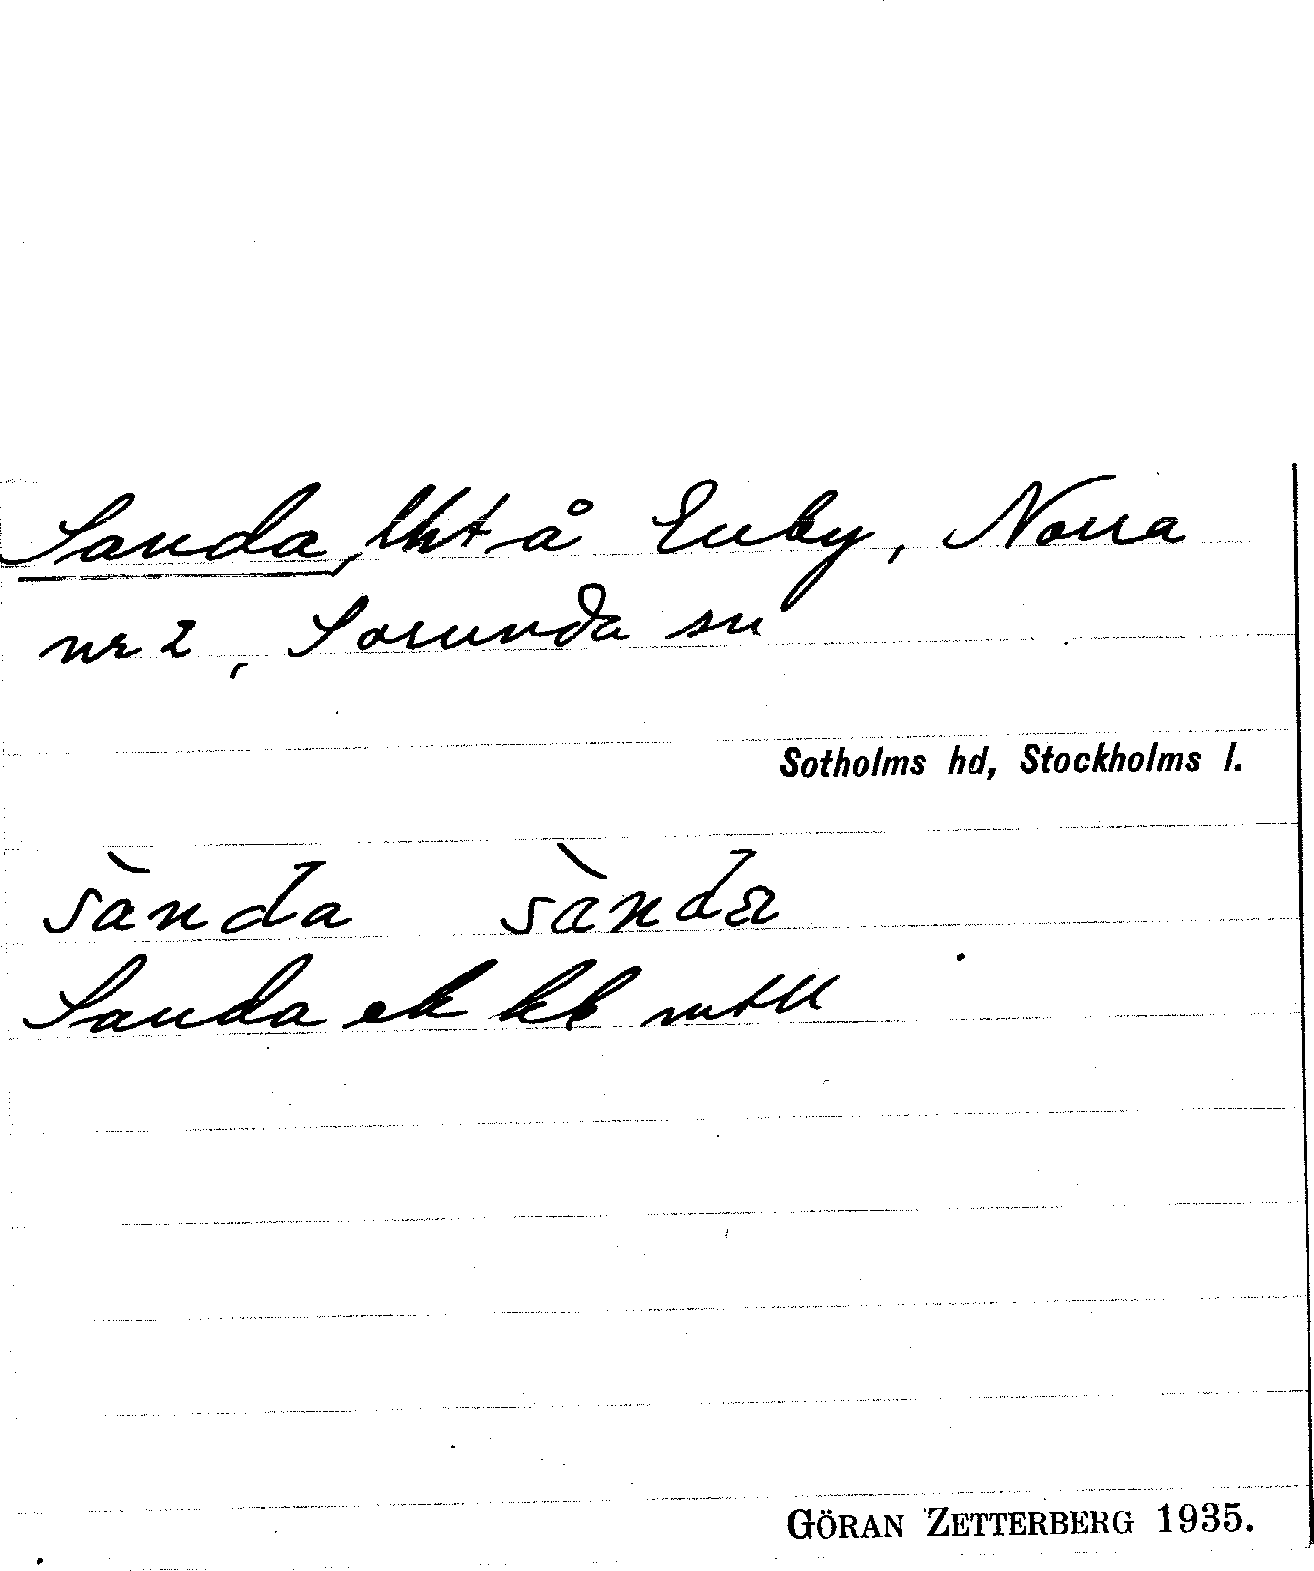 Sanda, lht å Enby, Norra
nr 2, Sorunda sn
Sotholms hd, Stockholms l.
sànda sàndæ
Sanda ek kb mtll
GÖRAN ZETTERBERG 1935.